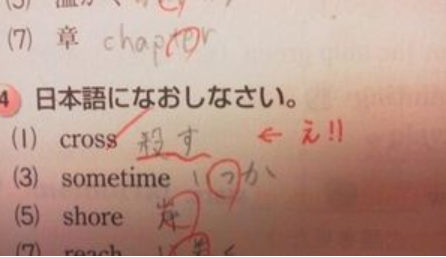 (7) 章 chapter
4 日本語になおしなさい。
(1) cross 殺す ← え!!
(3) sometime いつか
(5) shore 岸
(7) reach